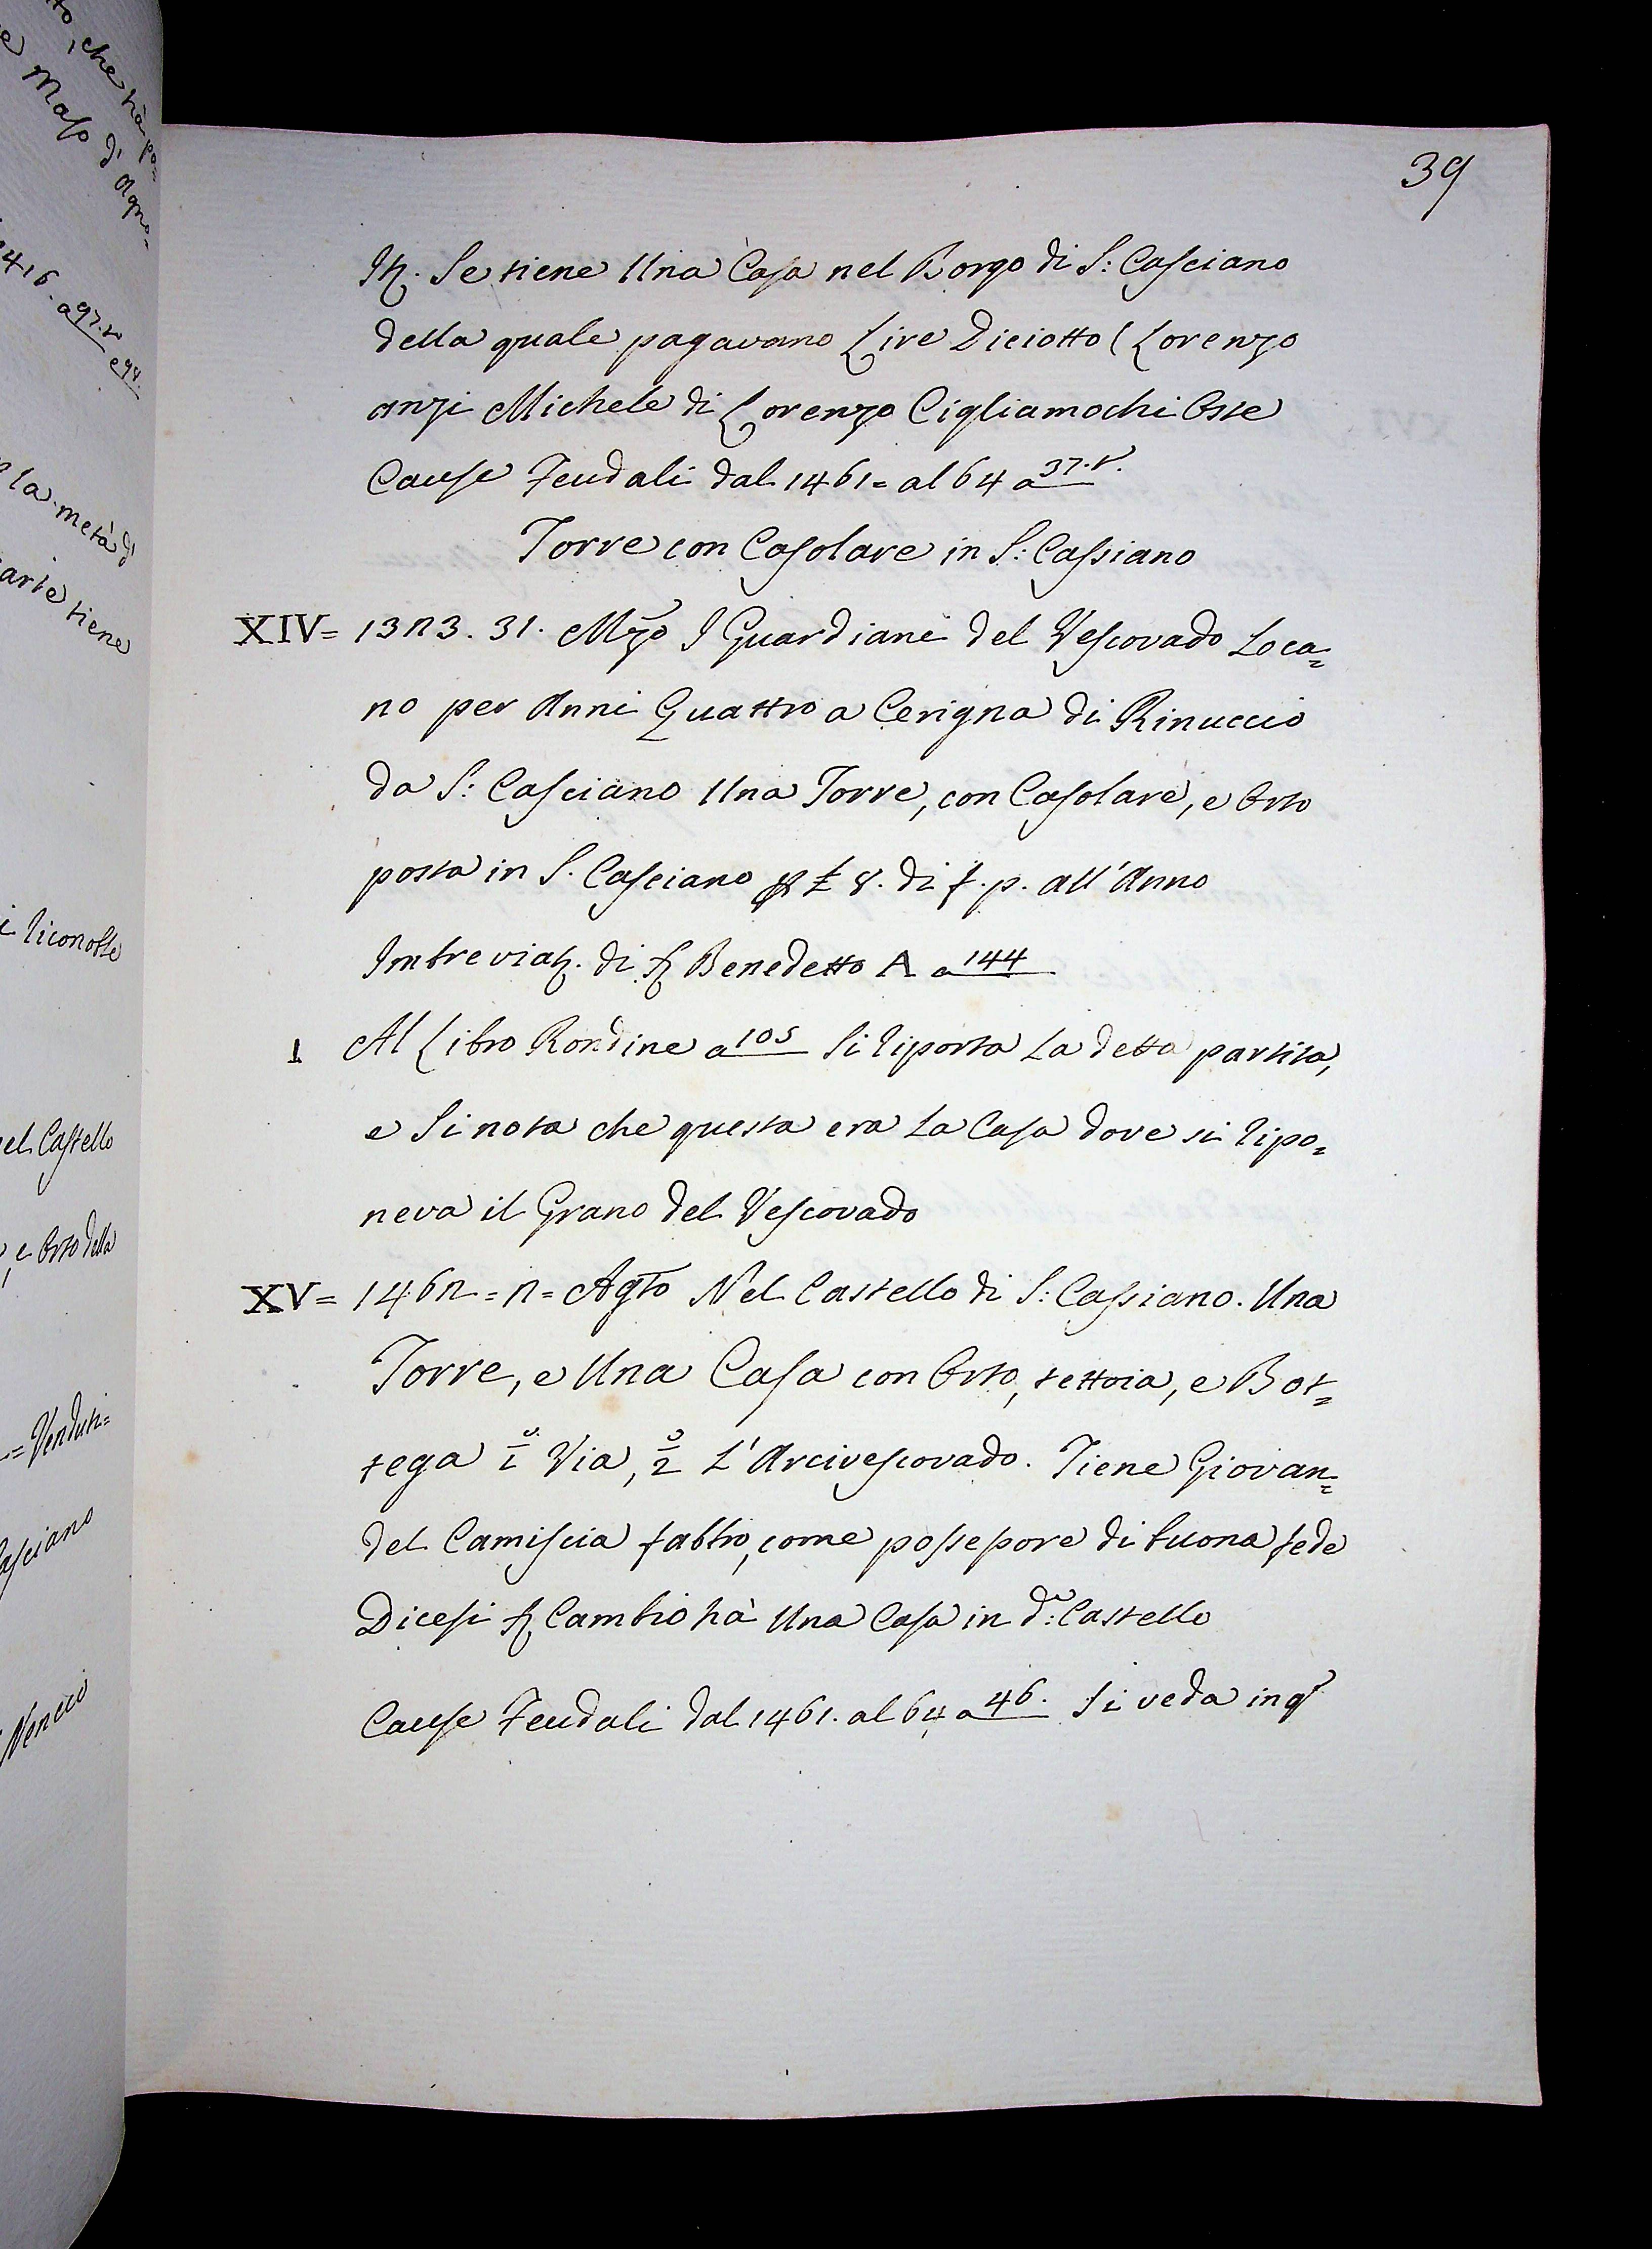 39
Itt. Se tiene Una Casa nel Borgo di S: Casciano
della quale pagavano Lire Diciotto (Lorenzo
anzi Michele di Lorenzo Cigliamochi Oste
Cause Feudali dal 1461= al 64 a 37.v.
Torre con Casolare in S: Cassiano
XIV= 1323. 31. Mzo I Guardiani del Vescovado Loca=
no per Anni Quattro a Cerigna di Rinuccio
da S: Casciano Una Torre, con Casolare, e Orto
posta in S. Casciano £ 8. di f.p. all'Anno
Imbreviaz. di Benedetto A a 144
1 Al Libro Rondine a 105 Si riporta La detta partita,
e Si nota che questa era La Casa dove si ripo=
neva il Grano del Vescovado
XV= 1462=2= Agto Nel Castello di S: Cassiano. Una
Torre, e Una Casa con Orto, tettoia, e Bot=
tega 1° Via, 2° L'Arcivescovado. Tiene Giovan=
del Camiscia fabbro, come possessore di buona fede
Dicesi Cambio hà Una Casa in d°: Castello
Cause Feudali dal 1461. al 64 a 46. Si veda in
che hà po=
Maso di Agno=
1416. a 97.v
e 98.
la metà di
tiene
riconosce
el Castello
e Orto della
= Venduti=
asciano
Nencio